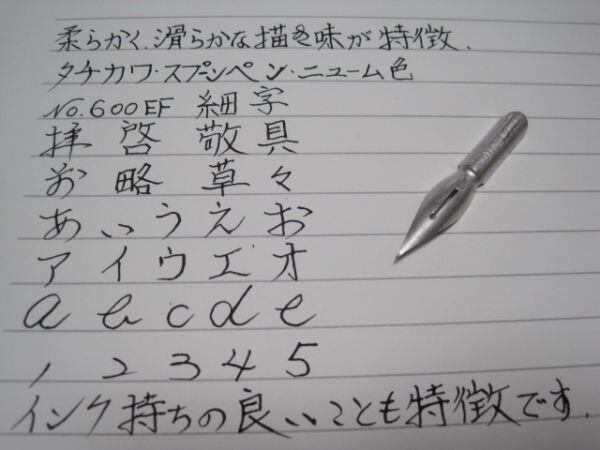 柔らかく.滑らかな描き味が特徴.
タチカワ・スプーンペン・ニューム色
No.600EF 細字
拝啓 敬具
前略 草々
あいうえお
アイウエオ
a b c d e
1 2 3 4 5
インク持ちの良いことも特徴です.